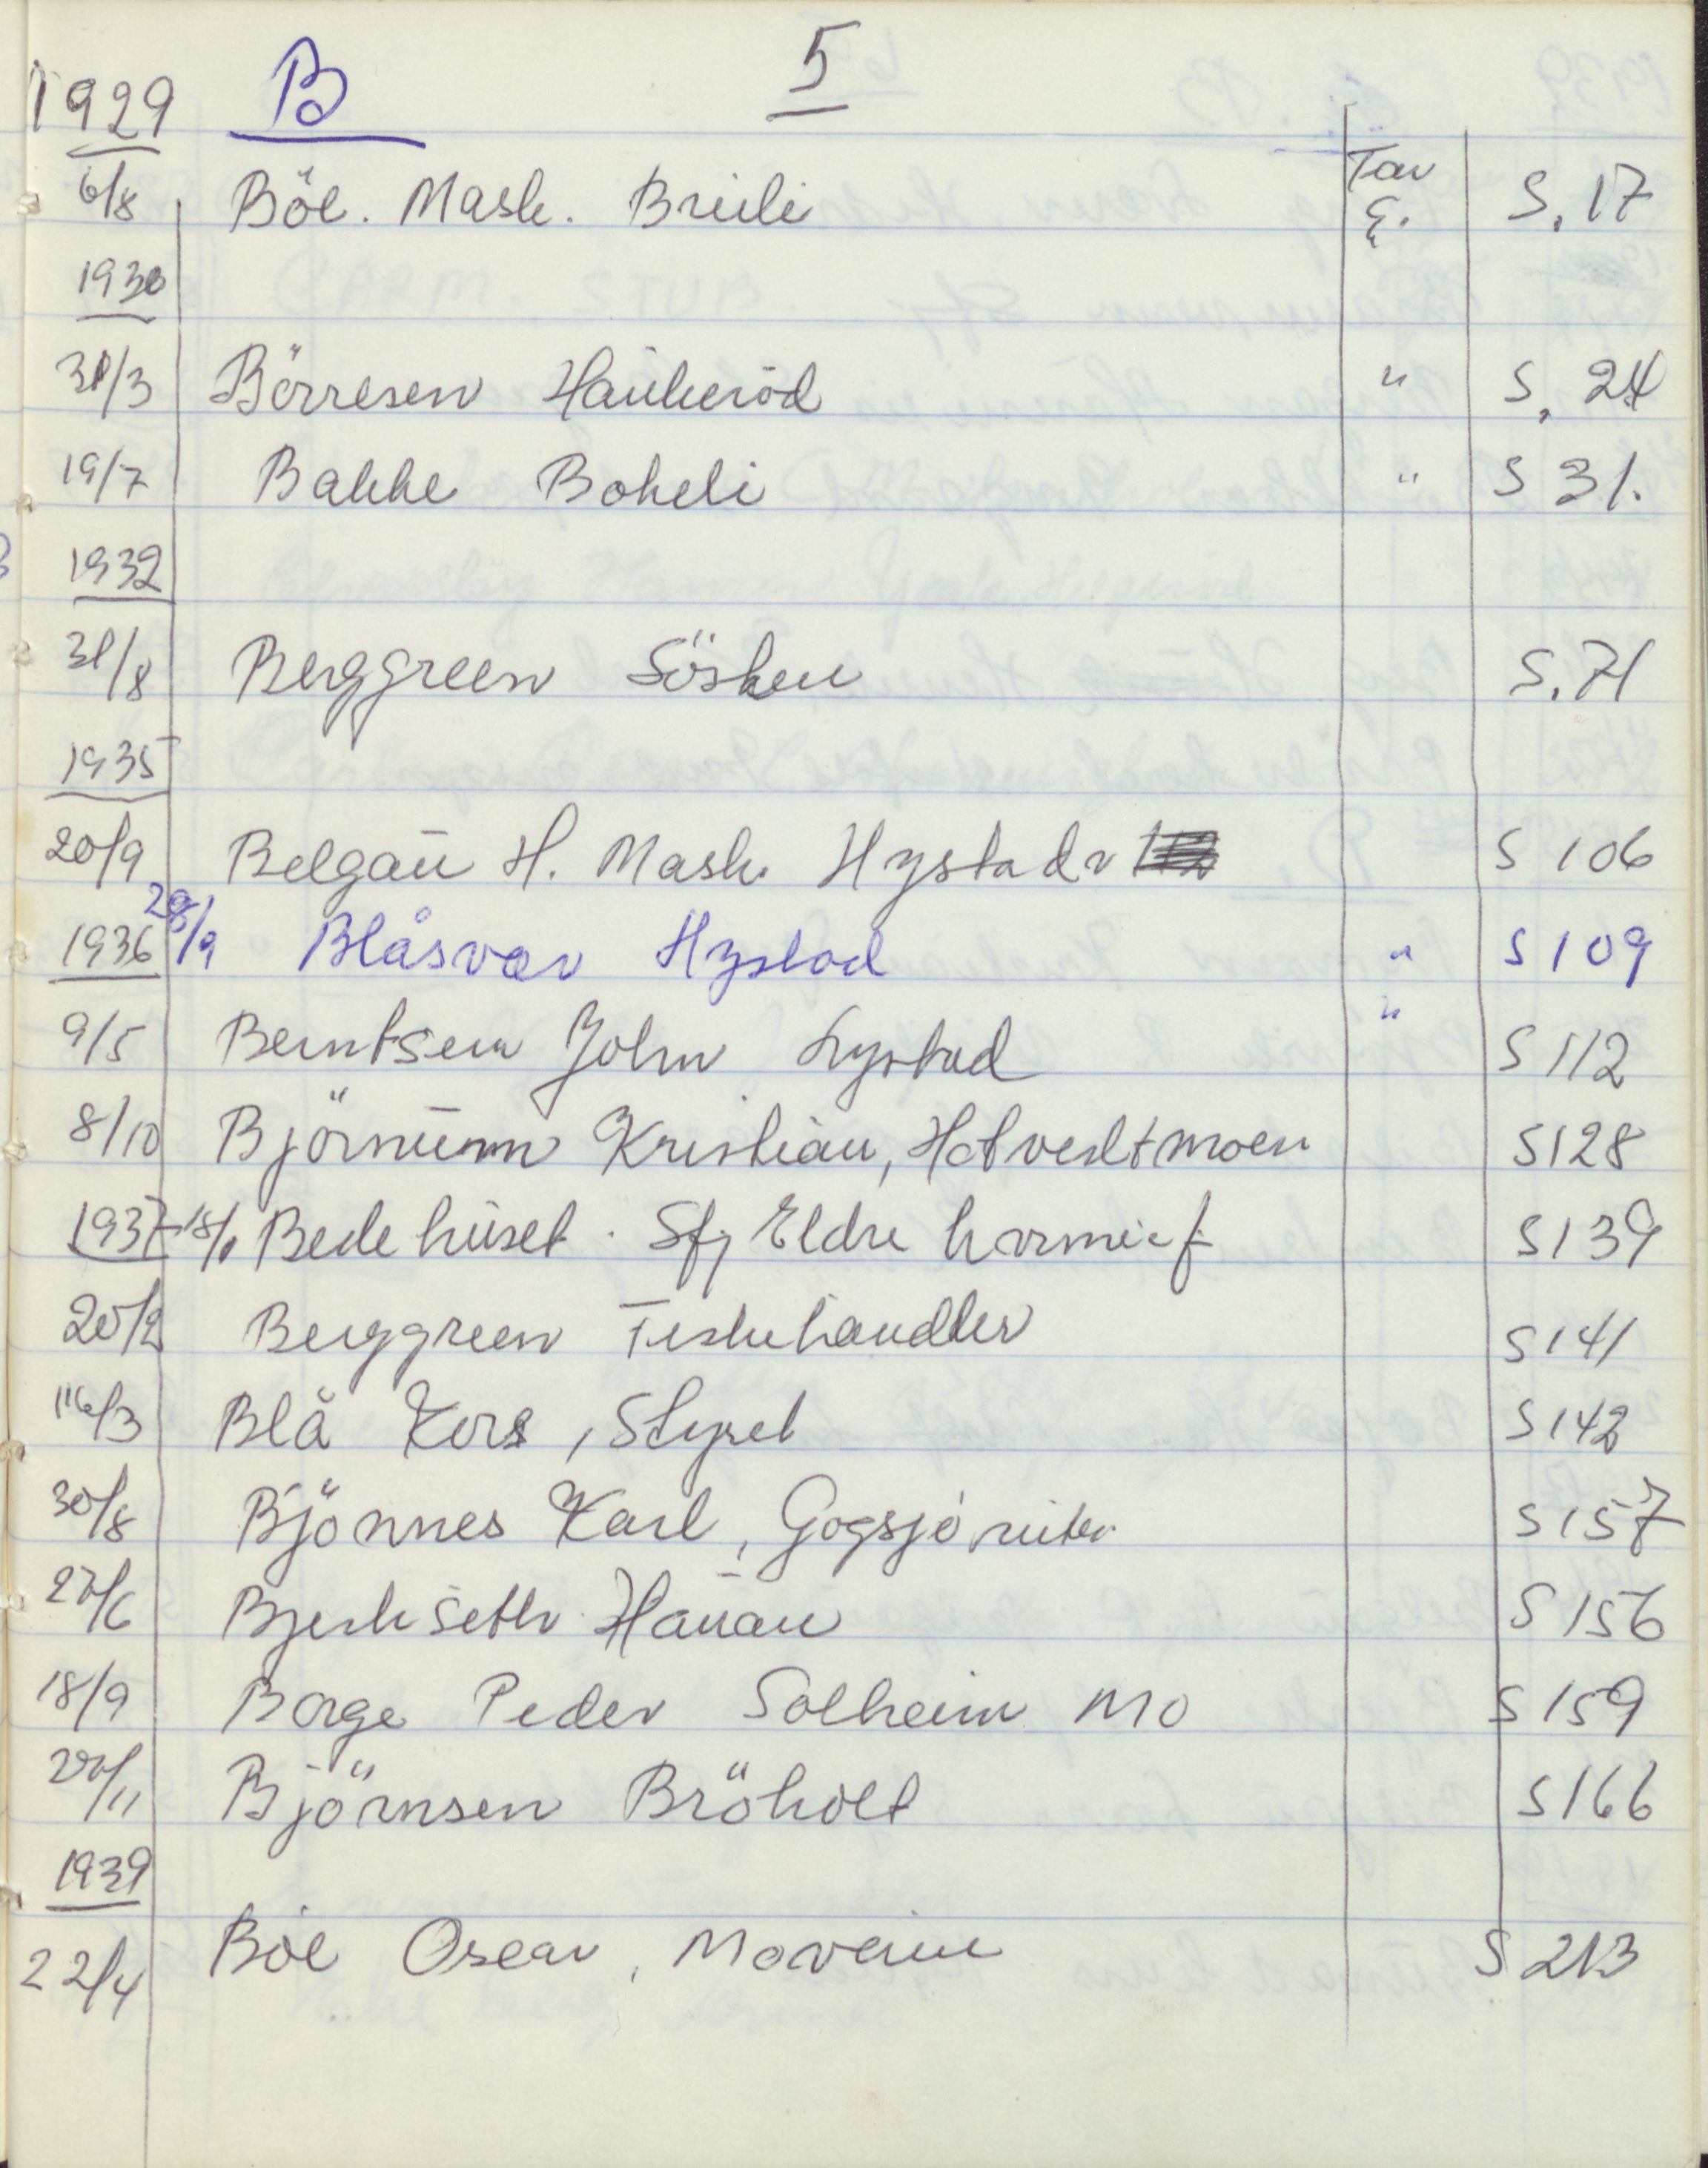 1929 B 5
6/8 Böe. Mask. Brüli Tav E. S. 17
1930
31/3 Börresen Haükeröd " S. 24
19/7 Bakke Bokeli " S 31.
1932
31/8 Berggreen Sösken S. 71
1935
20/9 Belgaü H. Mask. Hystadv S 106
1936 28/9 Blåsvær Hystad " S 109
9/5 Berntsen John Lystad " S 112
8/10 Björnümn Kristian, Hotvedtmoen S 128
1937 18/1 Bedehüset. Sfj Eldre S 139
20/2 Berggreen Fiskehandler S 141
16/3 Blå Kors, Styret S 142
30/8 Bjönnes Karl, Gogsjö S 157
27/6 Bjerkseth Haüan S 156
18/9 Borge Peder Solheim Mo S 159
20/11 Björnsen Bröholt S 166
1939
22/4 Böe Oscar, Moveien S 213